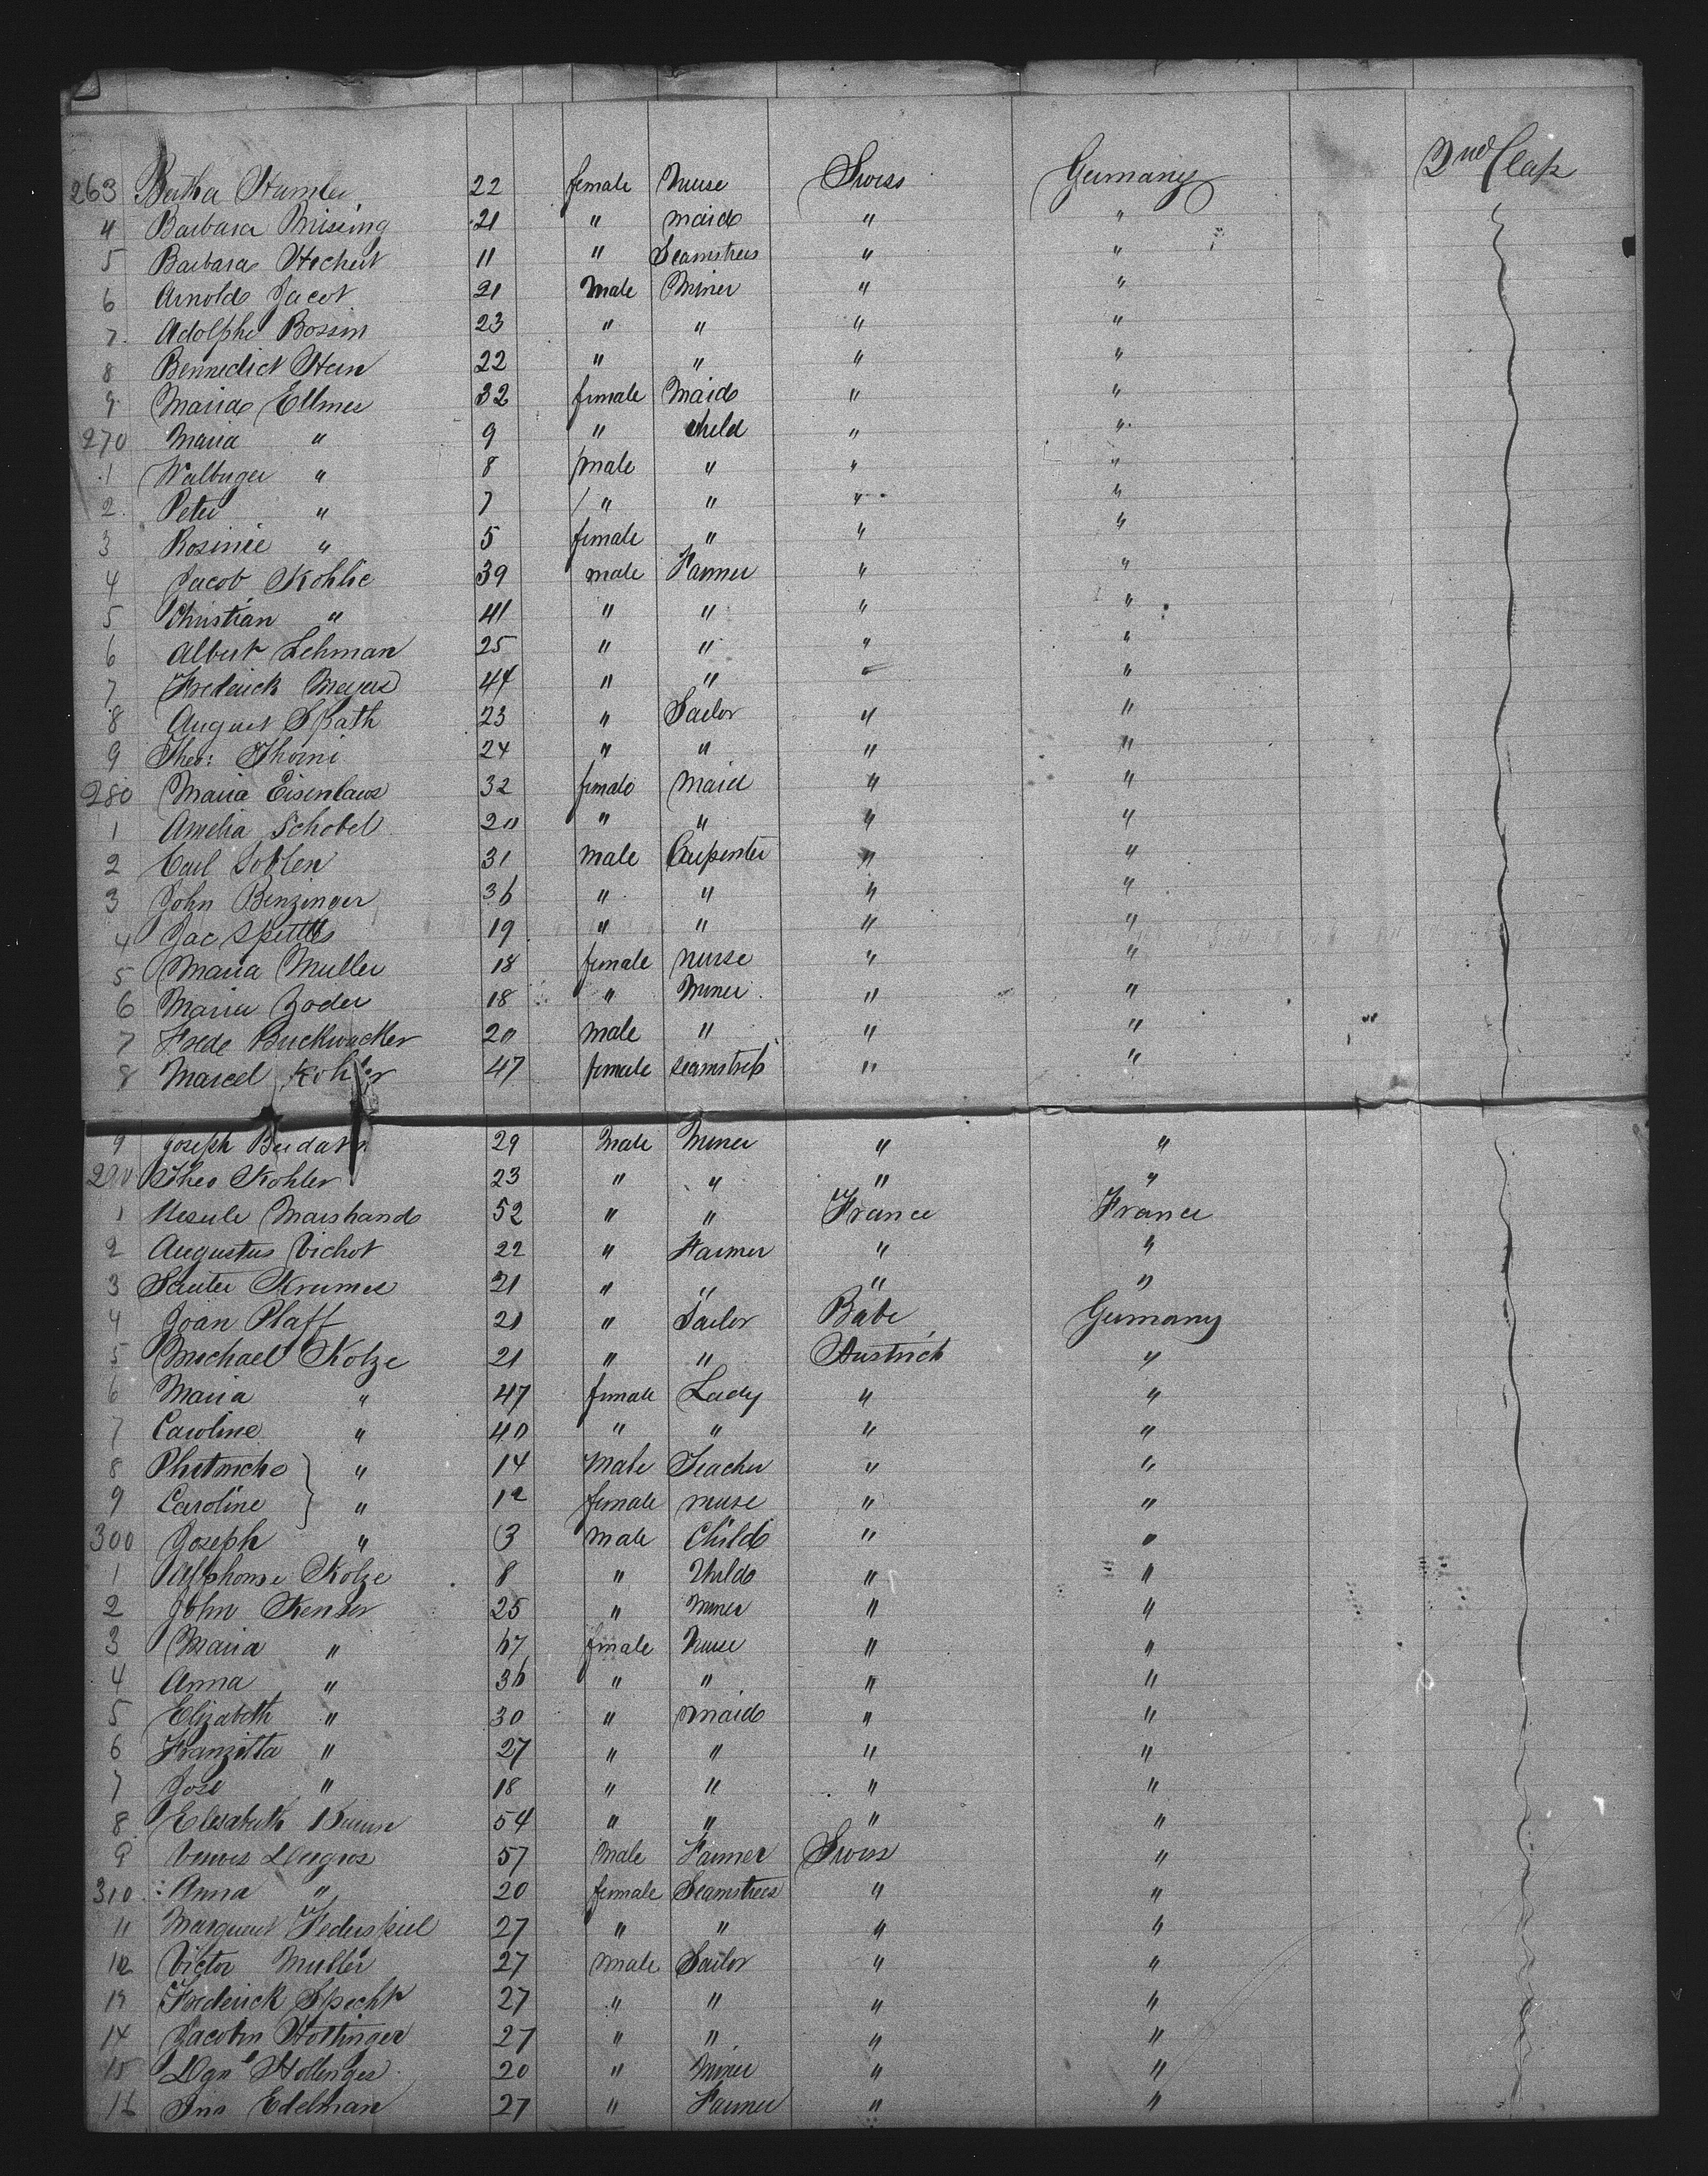 263 Bertha Stamler 22 female Nurse Swiss Germany 2nd Class
4 Barbara Missing 21 " maid " "
5 Barbara Hechert 11 " Seamstress " "
6 Arnold Jacot 21 Male Miner " "
7 Adolphe Bossin 23 " " " "
8 Bennedict Stein 22 " " " "
9 Maria Ellmer 32 female Maid " "
270 Maria " 9 " child " "
1 Walburger " 8 male " " "
2 Peter " 7 " " " "
3 Rosinie " 5 female " " "
4 Jacob Kohlie 39 male Farmer " "
5 Christian " 41 " " " "
6 Albert Lehman 25 " " " "
7 Frederick Meyers 44 " " " "
8 August Spath 23 " Sailor " "
9 Theo: Thomi 24 " " " "
280 Maria Eisenlaus 32 female maid " "
1 Amelia Schobel 20 " " " "
2 Carl Soblen 31 male Carpenter " "
3 John Benzinger 36 " " " "
4 Jac 19 " " " "
5 Maria Muller 18 female nurse " "
6 Maria Zoder 18 " Miner " "
7 Frede Buckwacker 20 male " " "
8 Marcel Kohler 47 female seamstress " "
9 Joseph 29 Male Miner " "
290 Theo Kohler 23 " " " "
1 Marshand 52 " " France France
2 Augustus Vichot 22 " Farmer " "
3 Sauter Krumes 21 " " " "
4 Joan Plaff 21 " Sailor Babe Germany
5 Michael Kolze 21 " " Austrich "
6 Maria " 47 female Lady " "
7 Caroline " 40 " " " "
8 " 14 Male Teacher " "
9 Caroline " 12 female nurse " "
300 Joseph " 3 male Child " "
1 Alphonse Kolze 8 " Child " "
2 John Kenser 25 " miner " "
3 Maria " 67 female Nurse " "
4 Anna " 36 " " " "
5 Elizabeth " 30 " maid " "
6 Franzetta " 27 " " " "
7 Jose " 18 " " " "
8 Elesabeth 54 " " " "
9 57 Male Farmer Swiss "
310 Anna " 20 female Seamstress " "
11 Margaret Federspiel 27 " " " "
12 Victor Muller 27 male Sailor " "
13 Frederick Specht 27 " " " "
14 Jacobin Hottinger 27 " " " "
15 Hollenger 20 " Miner " "
16 Jno Edelman 27 " Farmer " "